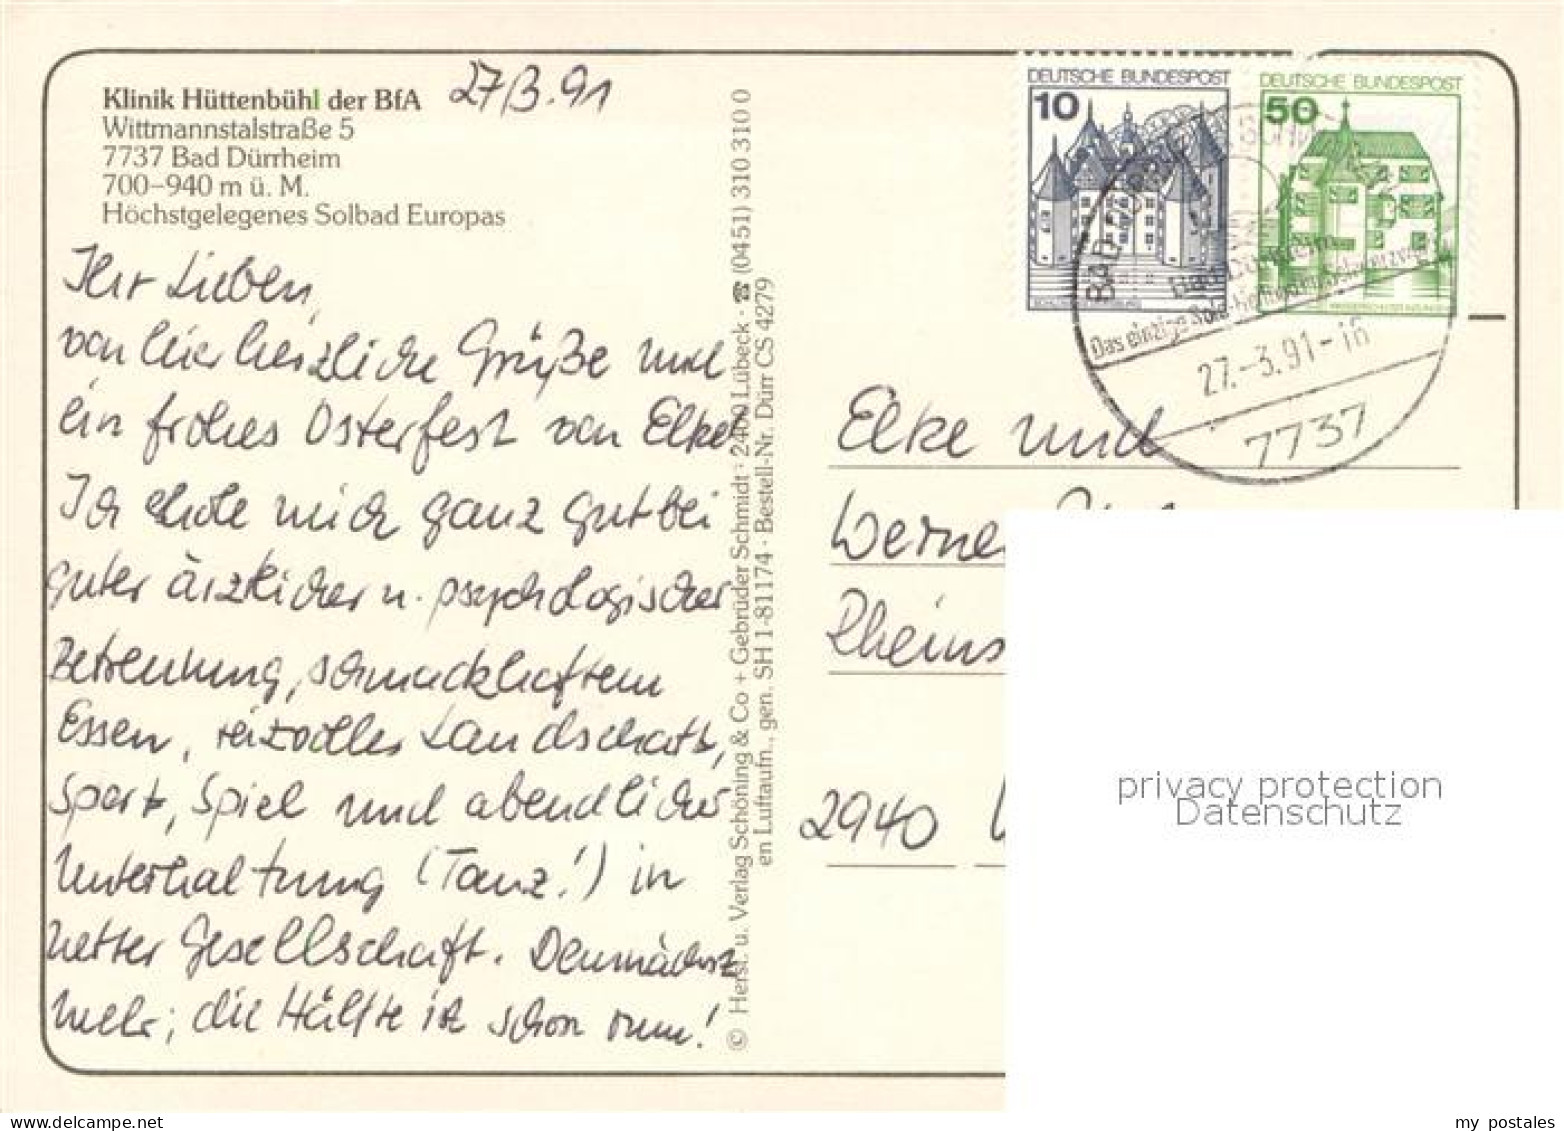 Klinik Hüttenbühl der BfA
Wittmannstalstraße 5
7737 Bad Dürrheim
700–940 m ü. M.
Höchstgelegenes Solbad Europas
27/3.91
Ihr Lieben,
von hier herzliche Grüße und
ein frohes Osterfest von Elke!
Ich erhole mich ganz gut bei
guter ärztlicher u. psychologischer
Betreuung, schmackhaftem
Essen, reizvoller Landschaft,
Sport, Spiel und abendlicher
Unterhaltung (Tanz!) in
netter Gesellschaft. Demnächst
mehr; die Hälfte ist schon rum!
© Herst. u. Verlag Schöning & Co + Gebrüder Schmidt · 2400 Lübeck · ☎ (0451) 310 310 0
en Luftaufn., gen. SH 1-81174 · Bestell-Nr. Dürr CS 4279
DEUTSCHE BUNDESPOST
10
DEUTSCHE BUNDESPOST
50
Das einzige
27.-3.91-16
7737
Elke und
Werner
Rheins
2940
privacy protection
Datenschutz
my postales